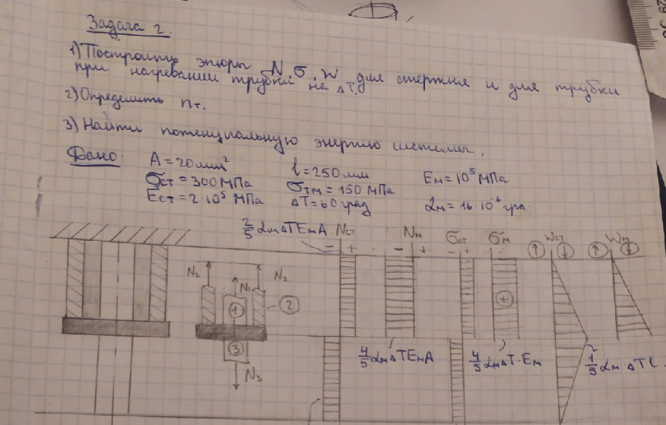 Задача 2.
1) Построить эпюры N, σ, w для стержня и для трубки
при нагревании трубки на ΔT.
2) Определить nт.
3) Найти потенциальную энергию системы.
Дано: A = 20 мм² l = 250 мм Eм = 10⁵ МПа
σст = 300 МПа σтм = 150 МПа
Eст = 2·10⁵ МПа ΔT = 60 град αм = 16·10⁻⁶ гра
2/5 αм ΔT Eм A Nст Nм σст σм wст wм
− + − + − +
N₂ N₁ N₂
1 2
3
N₃
+
4/5 αм ΔT Eм A 4/5 αм ΔT·Eм 1/5 αм ΔT l